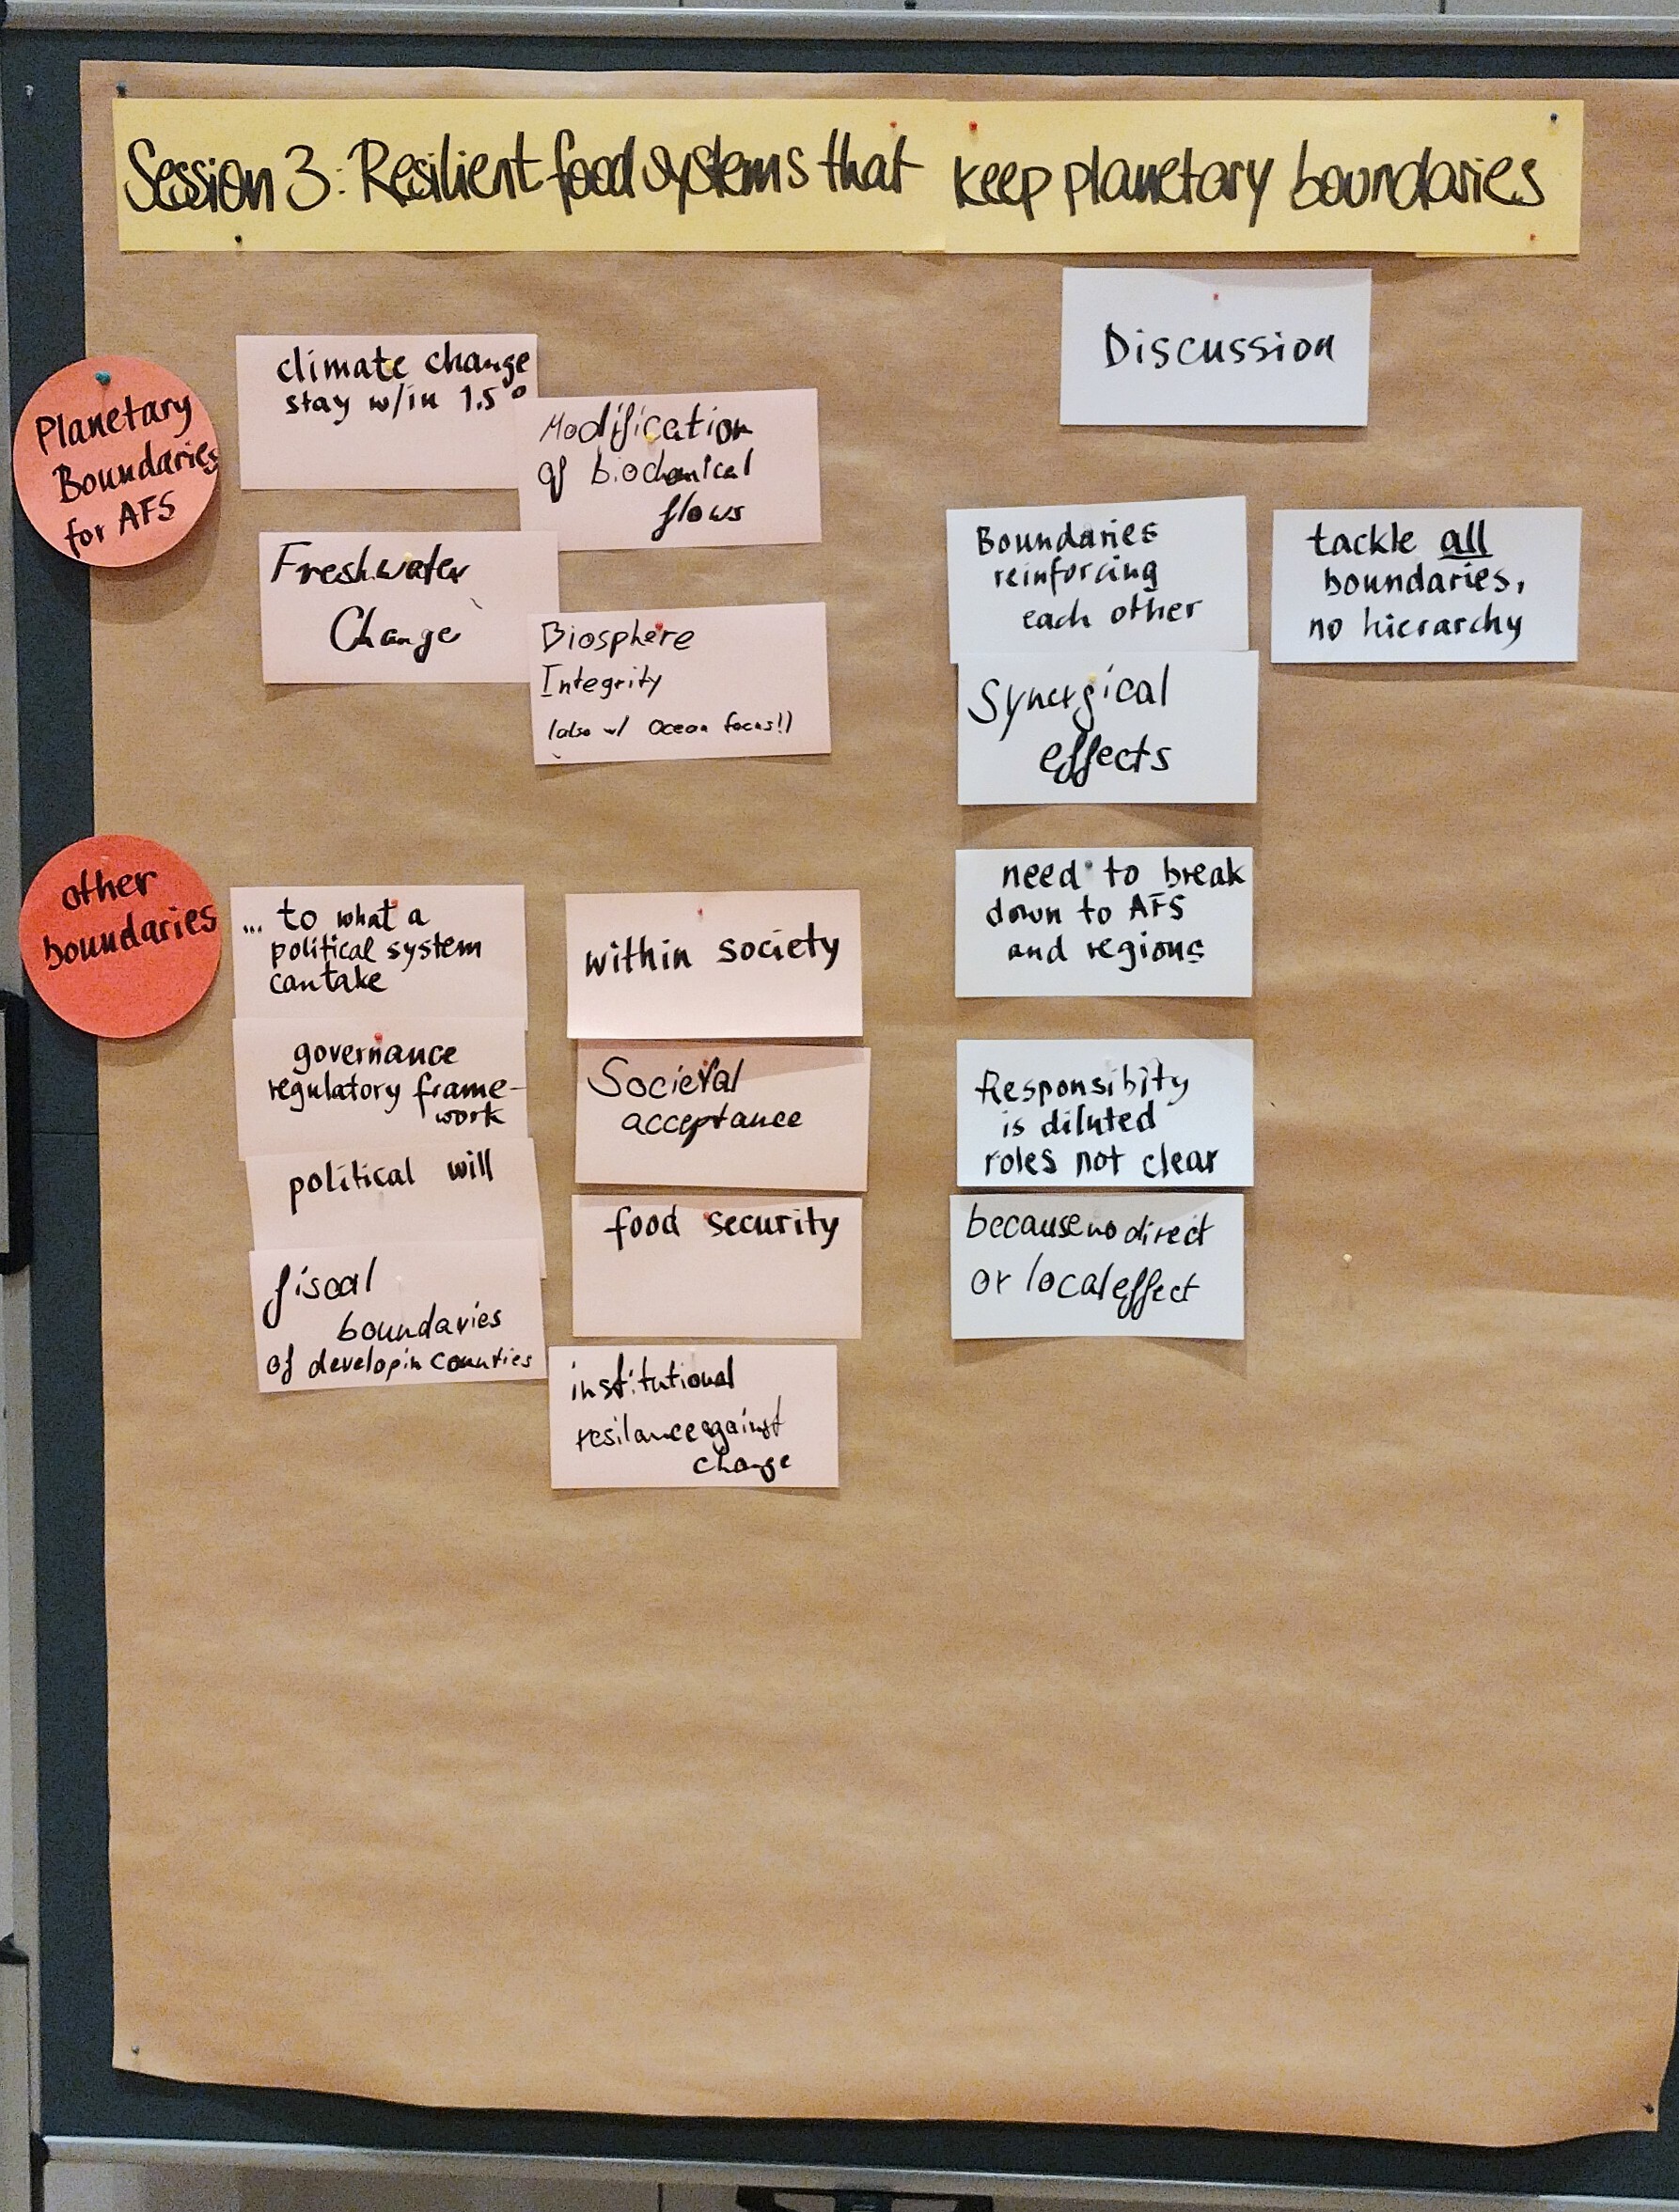 Session 3: Resilient food systems that keep planetary boundaries
Planetary
Boundaries
for AFS
climate change
stay w/in 1.5°
Modification
of biochemical
flows
Freshwater
Change
Biosphere
Integrity
(also w/ Ocean focus!)
other
boundaries
... to what a
political system
can take
governance
regulatory frame-
work
political will
fiscal
boundaries
of developin counties
within society
Societal
acceptance
food security
institutional
resilance against
change
Discussion
Boundaries
reinforcing
each other
tackle all
boundaries,
no hierarchy
Synergical
effects
need to break
down to AFS
and regions
Responsibity
is diluted
roles not clear
because no direct
or local effect